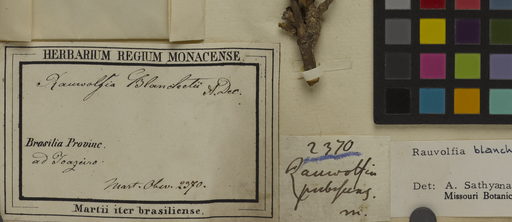 HERBARIUM REGIUM MONACENSE.
Rauwolfia Blanchetii A. Dec.
Brasilia Provinc.
ad Joazeiro.
Mart. Obs. 2270.
Martii iter brasiliense.
2370
Rauwolfia
pubescens
m.
Rauvolfia blanch
Det: A. Sathyana
Missouri Botanic